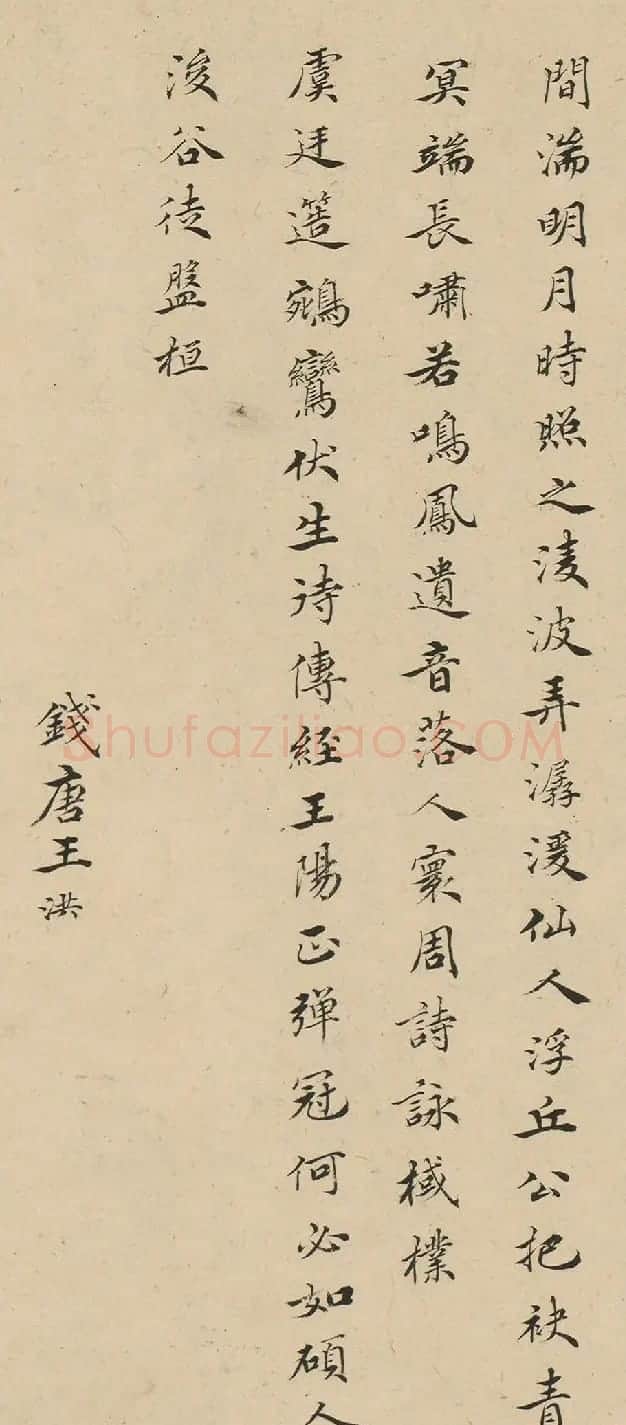 間湍明月時照之淩波弄潺湲仙人浮丘公把袂青
冥端長嘯若鳴鳳遺音落人寰周詩詠棫樸
虞廷簉鵷鸞伏生詩傳經王陽正彈冠何必如碩人
浚谷徒盤桓
錢唐王洪
Shufaziliao.COM